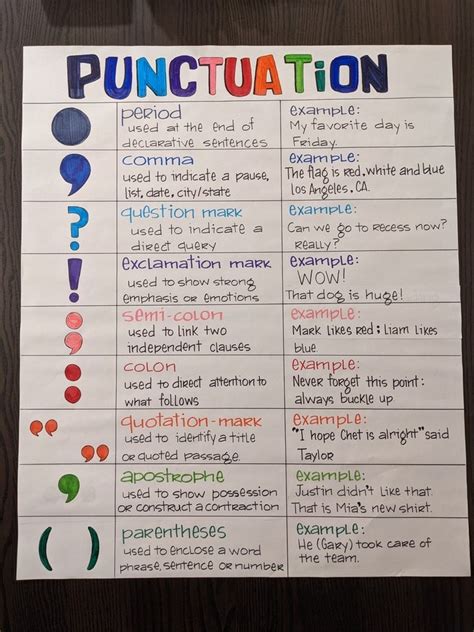 PUNCTUATION
period
used at the end of
declarative sentences
example:
My favorite day is
Friday.
,
comma
used to indicate a pause,
list, date, city/state
example:
The flag is red, white and blue
los Angeles, CA.
?
question mark
used to indicate a
direct query
example:
Can we go to recess now?
Really?
!
exclamation mark
used to show strong
emphasis or emotions
example:
WOW!
That dog is huge!
;
semi-colon
used to link two
independent clauses
example:
Mark likes red; Liam likes
blue.
:
colon
used to direct attention to
what follows
example:
Never forget this point:
always buckle up.
" "
quotation-mark
used to identify a title
or quoted passage.
example:
"I hope Chet is alright" said
Taylor
'
apostrophe
used to show possession
or construct a contraction
example:
Justin didn't like that.
That is Mia's new shirt.
( )
parentheses
used to enclose a word
phrase, sentence or number
example:
He (Gary) took care of
the team.